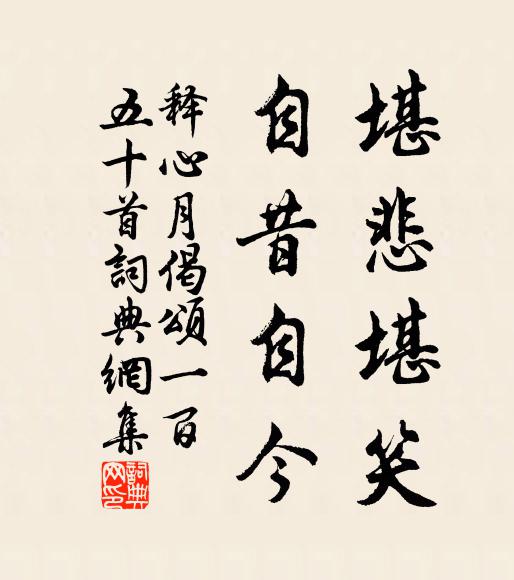 堪悲堪笑
自昔自今
释心月偈頌一百
五十首詞典網集
詞典
网印